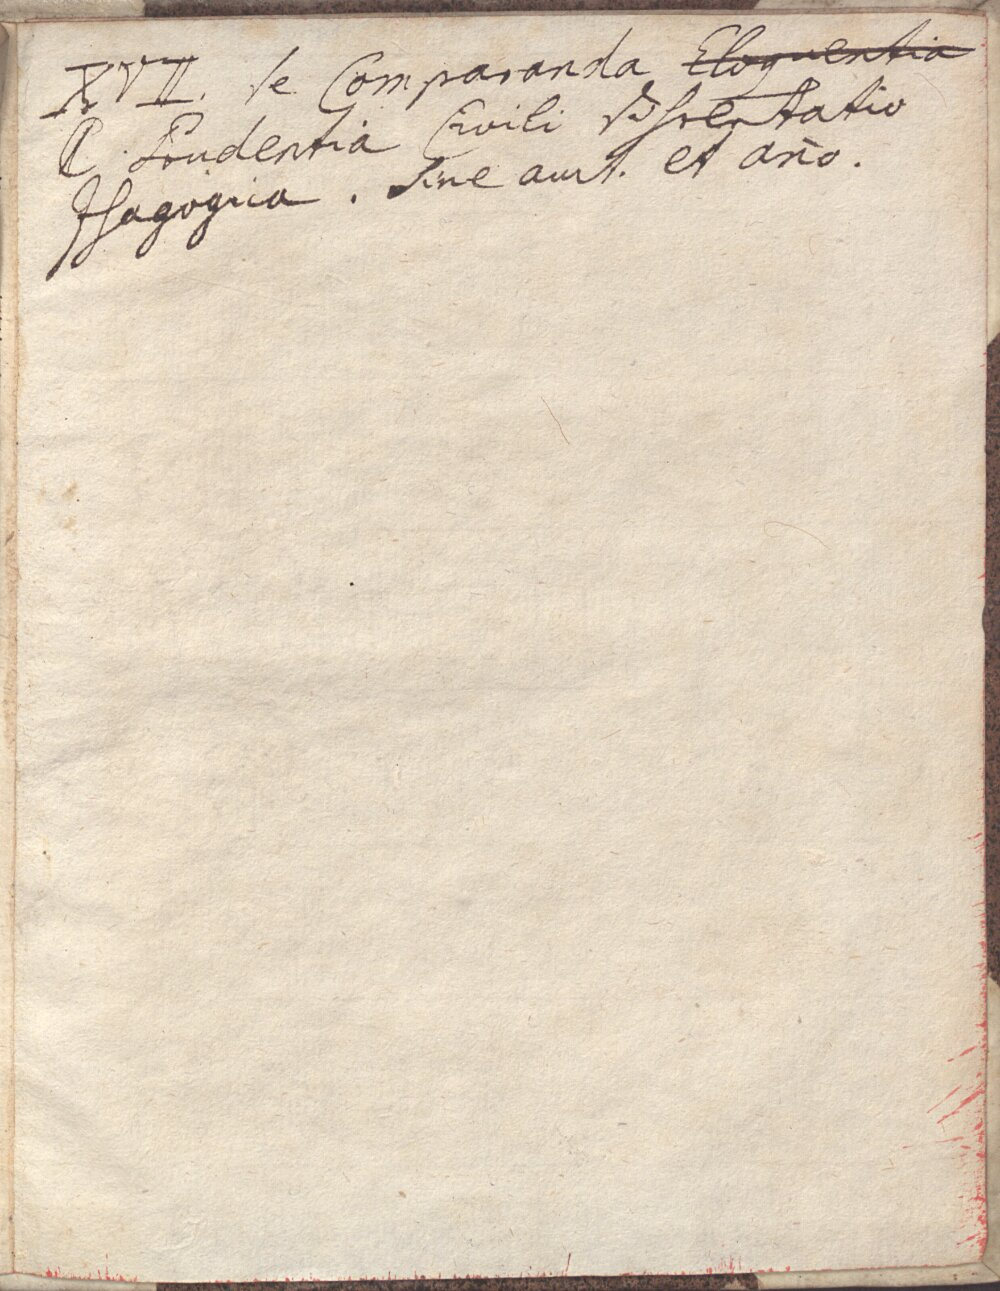 XVII. de Comparanda Eloquentia
Prudentia Civili dissertatio
Isagogica. sine auct. et año.